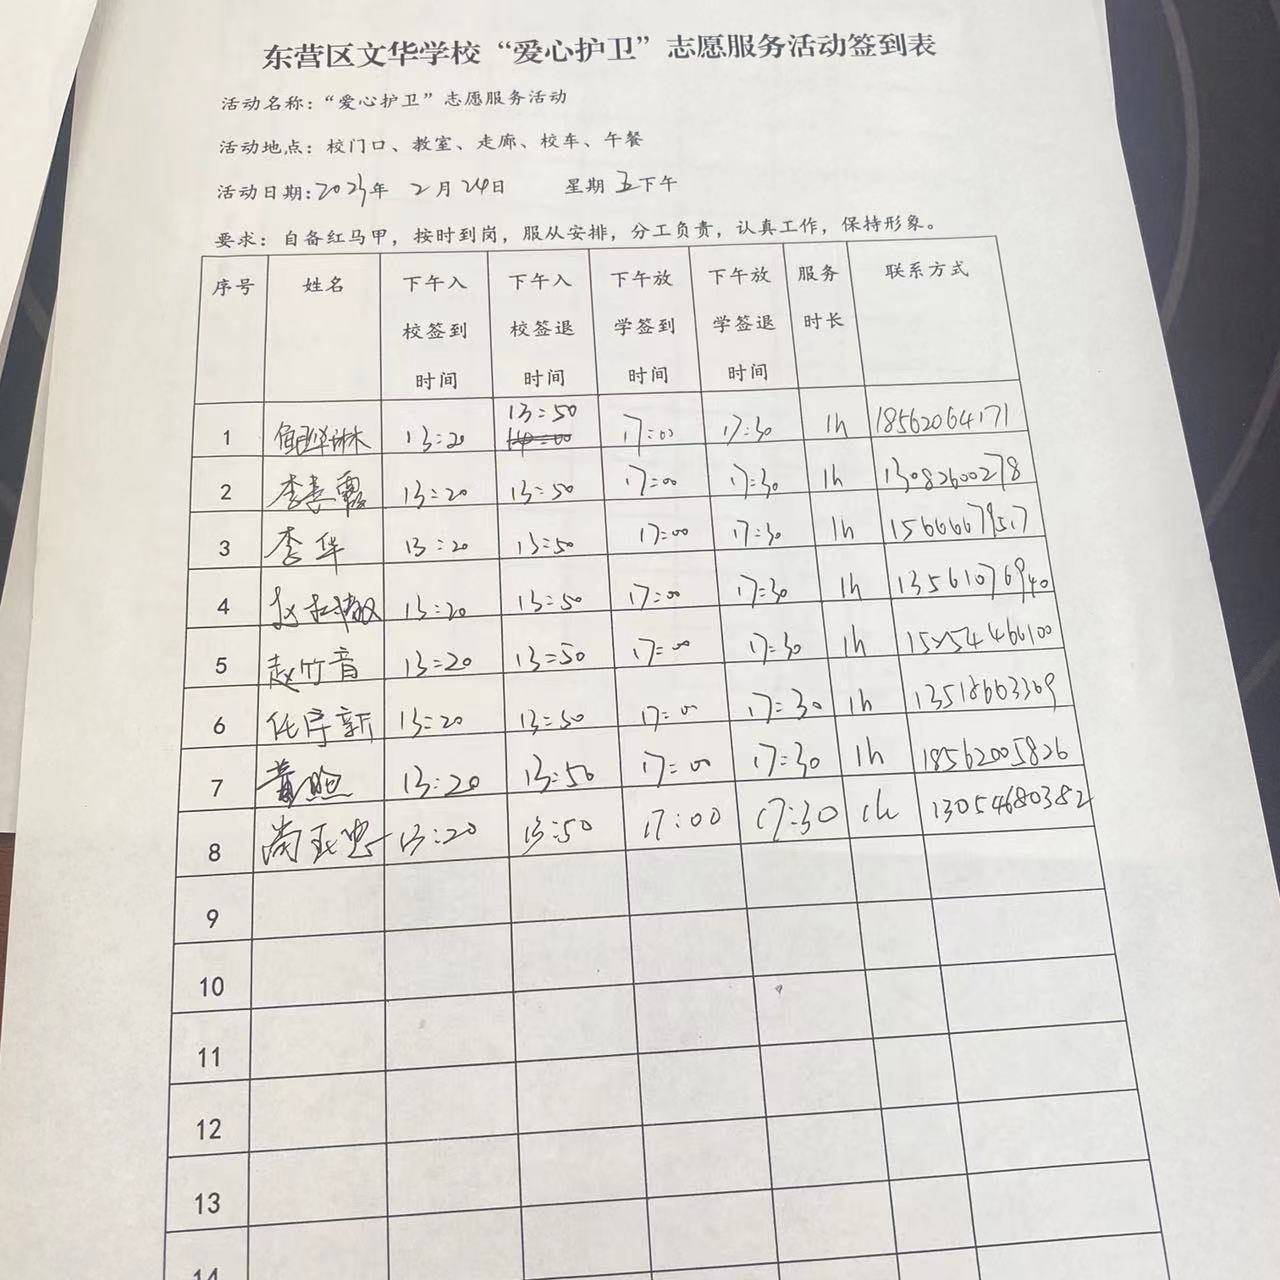 东营区文华学校“爱心护卫”志愿服务活动签到表
活动名称：“爱心护卫”志愿服务活动
活动地点：校门口、教室、走廊、校车、午餐
活动日期:2023年 2月24日 星期五下午
要求：自备红马甲，按时到岗，服从安排，分工负责，认真工作，保持形象。
序号 姓名 下午入校签到时间 下午入校签退时间 下午放学签到时间 下午放学签退时间 服务时长 联系方式
1 13:20 13:50 17:00 17:30 1h 18562064171
2 13:20 13:50 17:00 17:30 1h 13082600278
3 李华 13:20 13:50 17:00 17:30 1h
4 13:20 13:50 17:00 17:30 1h 13561076940
5 赵竹音 13:20 13:50 17:00 17:30 1h
6 13:20 13:50 17:00 17:30 1h
7 13:20 13:50 17:00 17:30 1h 18562005826
8 13:20 13:50 17:00 17:30 1h 13054680382
9
10
11
12
13
14